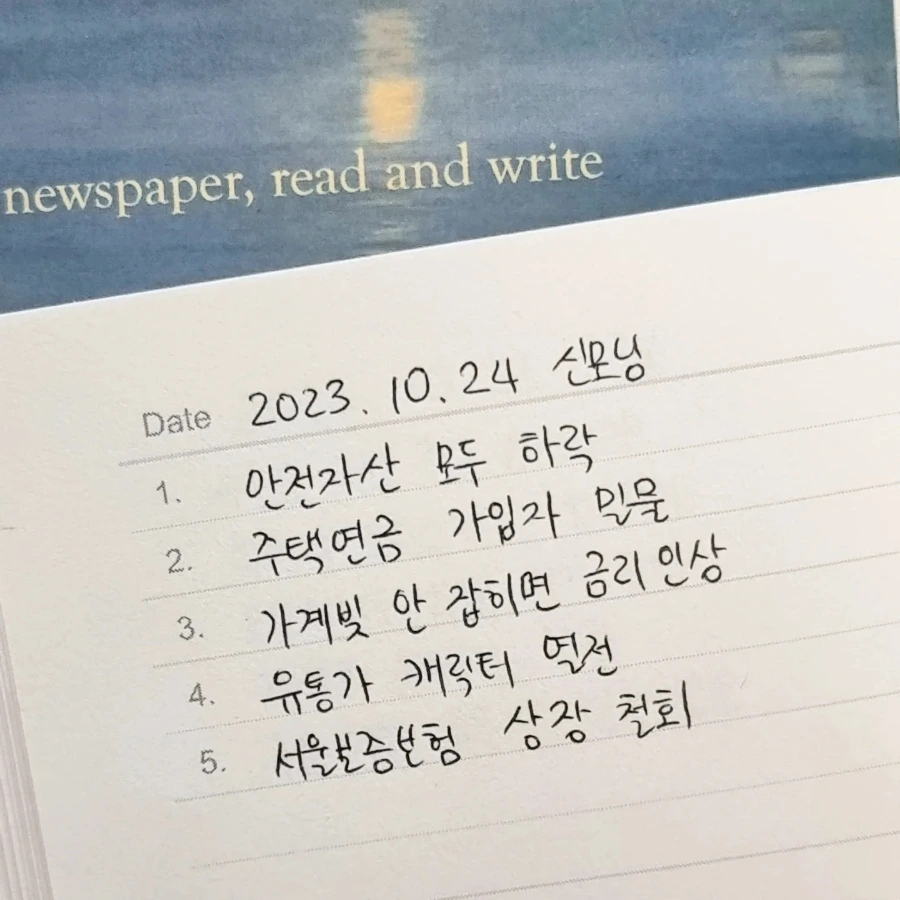 newspaper, read and write
Date 2023. 10. 24 신모닝
1. 안전자산 모두 하락
2. 주택연금 가입자 밀물
3. 가계빚 안 잡히면 금리 인상
4. 유통가 캐릭터 열전
5. 서울보증보험 상장 철회